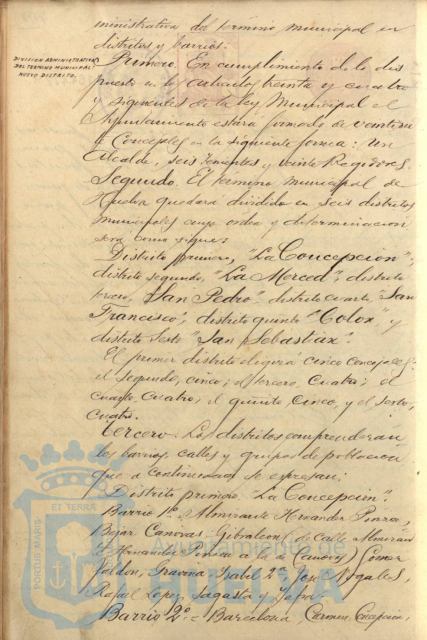 ministrativa del término municipal en
distritos y barrios.
DIVISION ADMINISTRATIVA
DEL TERMINO MUNICIPAL
NUEVO DISTRITO.
Primero. En cumplimiento de lo dis
puesto en los artículos treinta y cuatro
y siguientes de la ley Municipal el
Ayuntamiento estará formado de veintisiete
Concejales en la siguiente forma: Un
Alcalde, seis Tenientes y veinte Regidores.
Segundo. El término municipal de
Huelva quedará dividido en seis distritos
municipales cuyo orden y determinacion
será como sigue:
Distrito primero, "La Concepcion";
distrito segundo, "La Merced"; distrito
tercero, "San Pedro"; distrito cuarto, "San
Francisco"; distrito quinto "Colon", y
distrito sesto "San Sebastian".
El primer distrito elegirá cinco Concejales;
el segundo, cinco; el tercero, cuatro; el
cuarto, cuatro; el quinto, cinco, y el sesto,
cuatro.
Tercero. Los distritos comprenderán
los barrios, calles y grupos de poblacion
que a continuacion se espresan:
Distrito primero. "La Concepcion".
Barrio 1º Almirante Hernandez Pinzon,
Bejar, Canovas, Gibraleon (de calle Almirante
Hernandez Pinzon a la de Canovas) Gomez
Jaldon, Gravina, Isabel 2ª, José Nogales,
Rafael Lopez, Sagasta y
Barrio 2º = Barcelona, Carmen, Concepcion,
ET TERRA
PORTUS MARIS
Ayuntamiento de
HUELVA